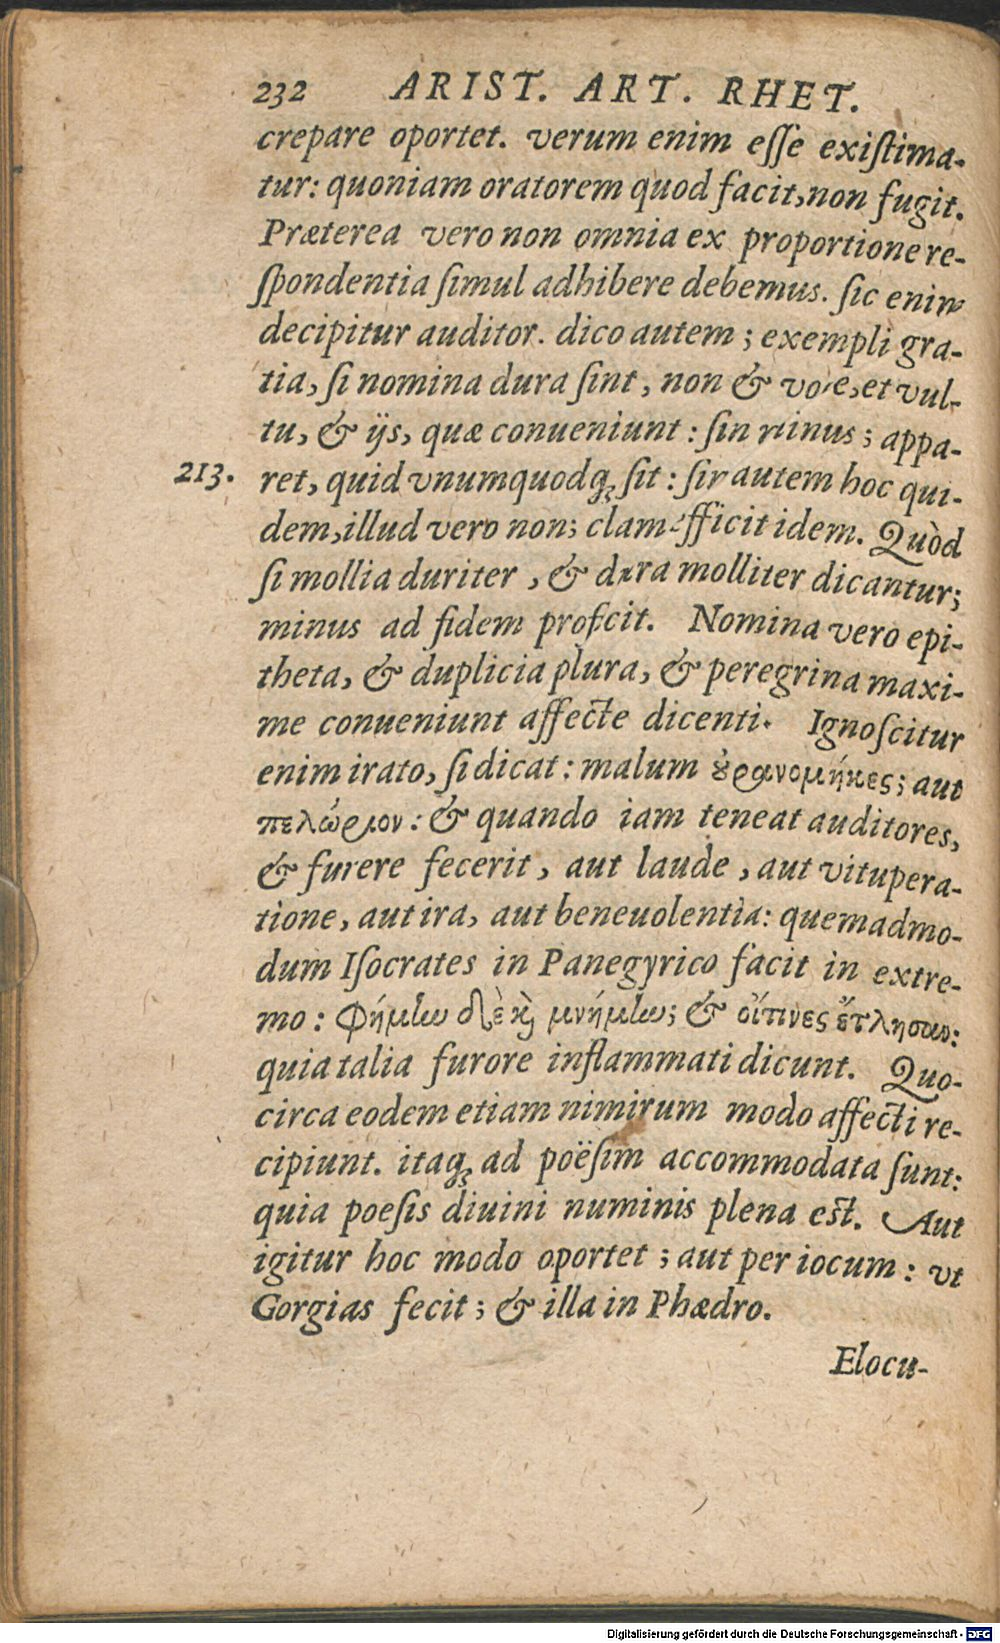 232 ARIST. ART. RHET.
crepare oportet. verum enim eſſe exiſtima-
tur: quoniam oratorem quod facit, non fugit.
Præterea vero non omnia ex proportione re-
ſpondentia ſimul adhibere debemus. ſic enim
decipitur auditor. dico autem; exempli gra-
tia, ſi nomina dura ſint, non & voce, et vul-
tu, & ijs, quæ conueniunt: ſin minus; appa-
213. ret, quid vnumquodq́ꝫ ſit: ſin autem hoc qui-
dem, illud vero non; clam efficit idem. Quòd
ſi mollia duriter, & dura molliter dicantur;
minus ad fidem proficit. Nomina vero epi-
theta, & duplicia plura, & peregrina maxi-
me conueniunt affecte dicenti. Ignoſcitur
enim irato, ſi dicat: malum ȣ̓ρανομήκες; aut
πελώριον: & quando iam teneat auditores,
& furere fecerit, aut laude, aut vitupera-
tione, aut ira, aut beneuolentia: quemadmo-
dum Iſocrates in Panegyrico facit in extre-
mo: Φήμην δὲ καὶ μνήμην; & οἵτινες ἔτλησαν:
quia talia furore inflammati dicunt. Quo-
circa eodem etiam nimirum modo affecti re-
cipiunt. itaqꝫ ad poëſim accommodata ſunt:
quia poeſis diuini numinis plena eſt. Aut
igitur hoc modo oportet; aut per iocum: vt
Gorgias fecit; & illa in Phædro.
Elocu-
Digitalisierung gefördert durch die Deutsche Forschungsgemeinschaft - DFG